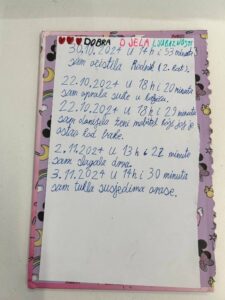 DOBRA DJELA LJUBAZNOSTI
30.10.2024 u 14h i 53 minuta
sam očistila Radnik (2. kat).
22.10.2024 u 18 h i 20 minuta
sam oprala suđe u
22.10.2024 u 18 h i 29 minuta
sam donijela ženi mobitel koji joj je
ostao kod bake.
2.11.2024 u 13 h i 22 minute
sam slagala drva.
3.11.2024 u 14h i 30 minuta
sam tukla susjedima orase.